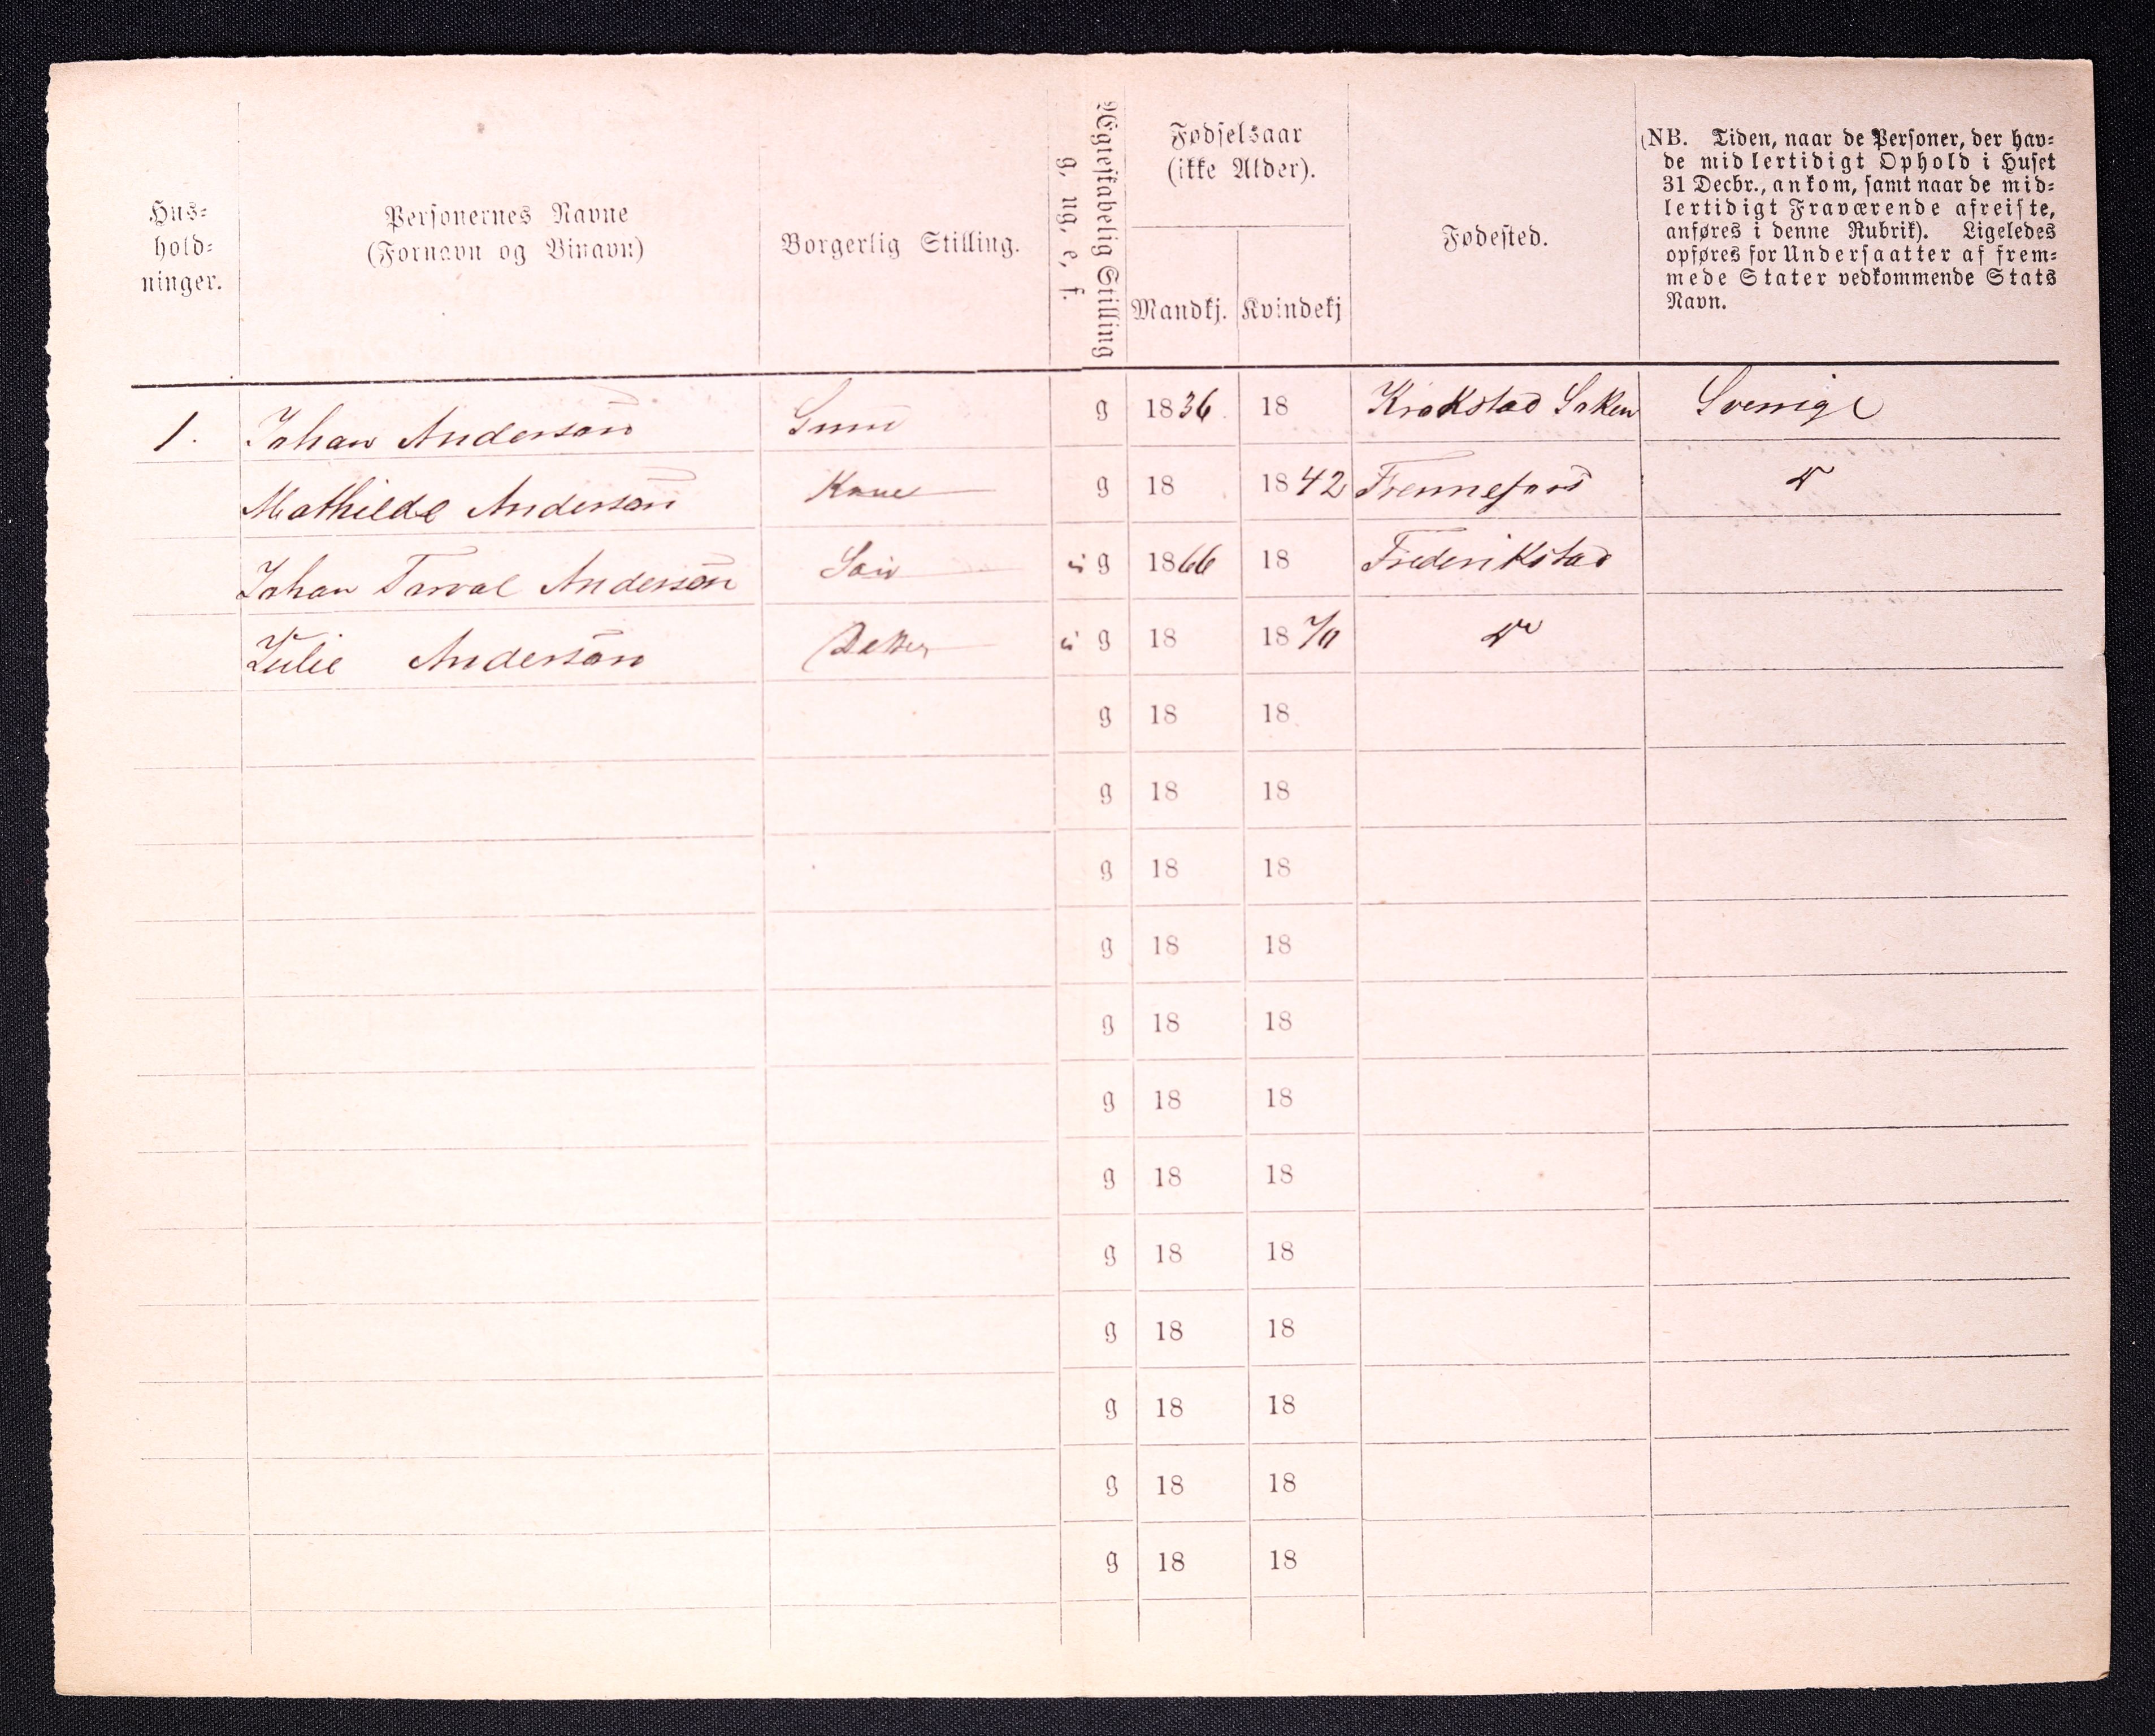 Hus-
hold-
ninger.
Personernes Navne
(Fornavn og Binavn)
Borgerlig Stilling.
Ægteskabelig Stilling
g, ug, e, f.
Fødselsaar
(ikke Alder).
Mandkj. Kvindekj
Fødested.
(NB. Tiden, naar de Personer, der hav-
de midlertidigt Ophold i Huset
31 Decbr., ankom, samt naar de mid-
lertidigt Fraværende afreiste,
anføres i denne Rubrik). Ligeledes
opføres for Undersaatter af frem-
mede Stater vedkommende Stats
Navn.
1. Johan Anderson g 1836 18 Krokstad Sverige
Mathilde Anderson Kone g 18 1842
Johan Torval Anderson Søn g 1866 18 Frederikstad
Julie Anderson Datter g 18 1870 Do
g 18 18
g 18 18
g 18 18
g 18 18
g 18 18
g 18 18
g 18 18
g 18 18
g 18 18
g 18 18
g 18 18
g 18 18